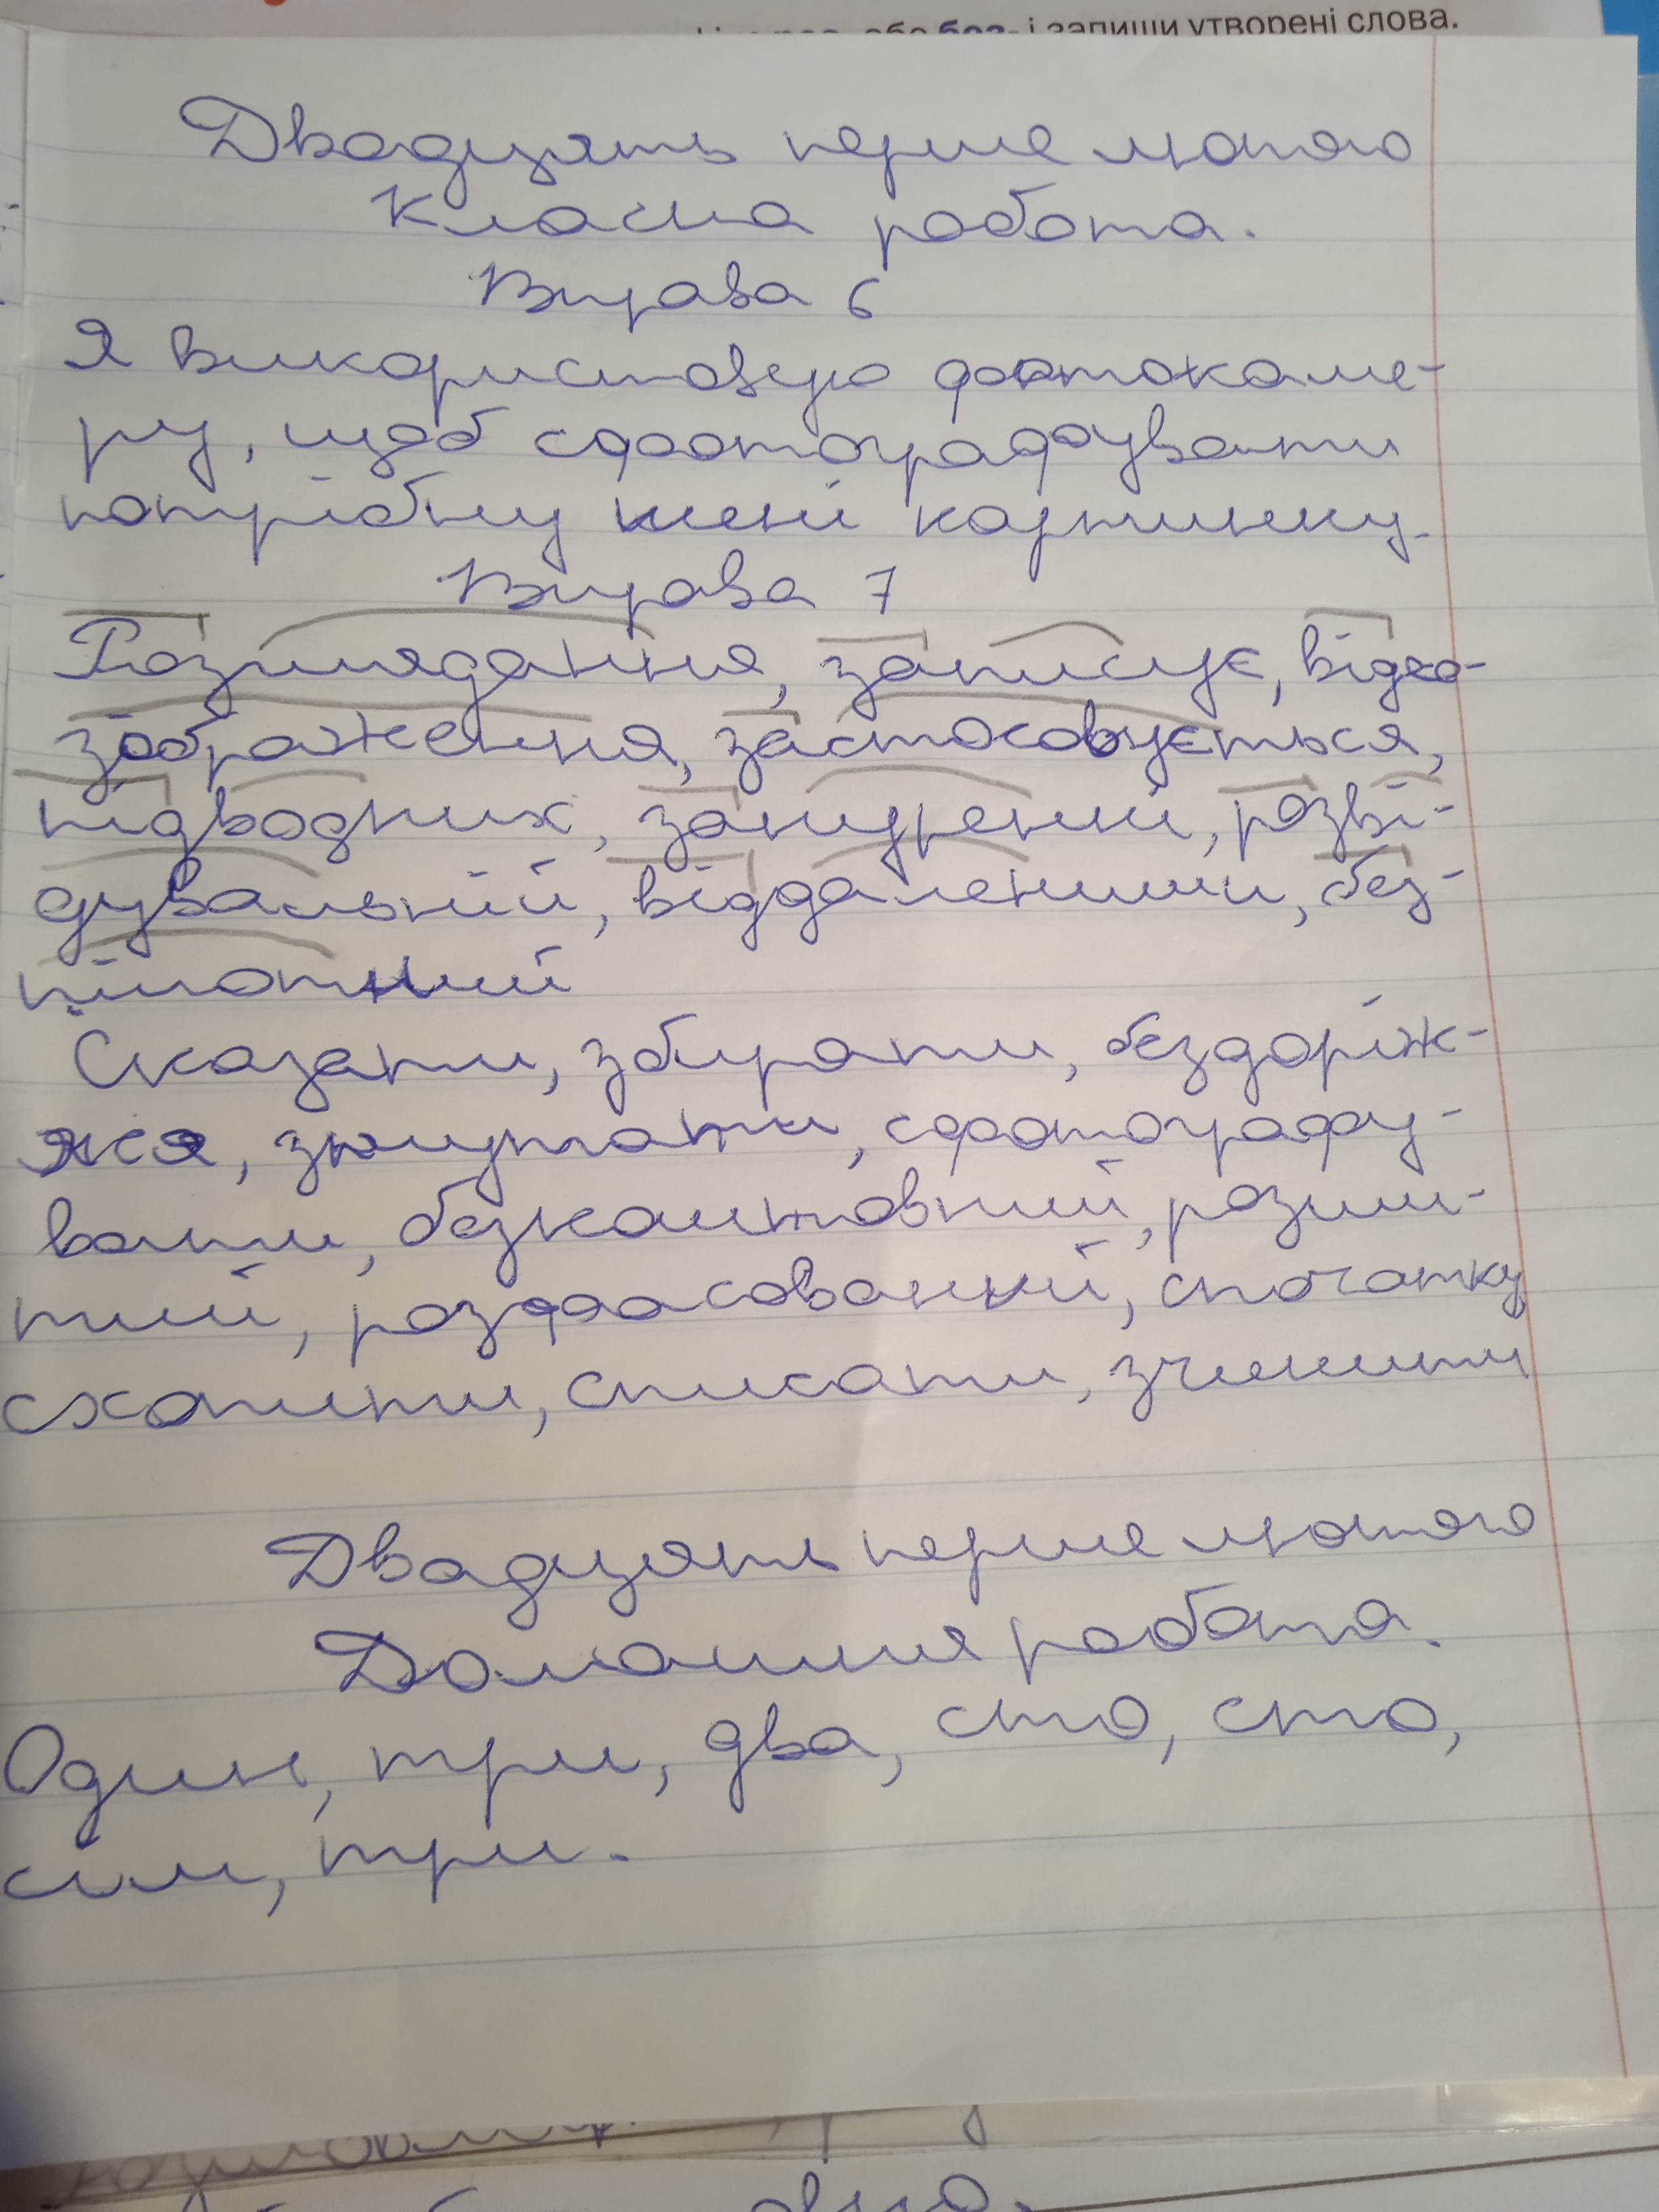 або без- і запиши утворені слова.
Двадцять перше лютого
Класна робота.
Вправа 6
Я використовую фотокаме-
ру, щоб сфотографувати
потрібну мені картинку.
Вправа 7
Розглядання, записує, відео-
зображення, застосовується,
підводних, занурений, розві-
дувальній, віддаленими, без-
пілотний
Сказати, збирати, бездоріж-
жя, зжутати, сфотографу-
вати, безкоштовний, розши-
тий, розфасований, спочатку
схопити, списати, зчинити
Двадцять перше лютого
Домашня робота.
Один, три, два, сто, сто,
сім, три.